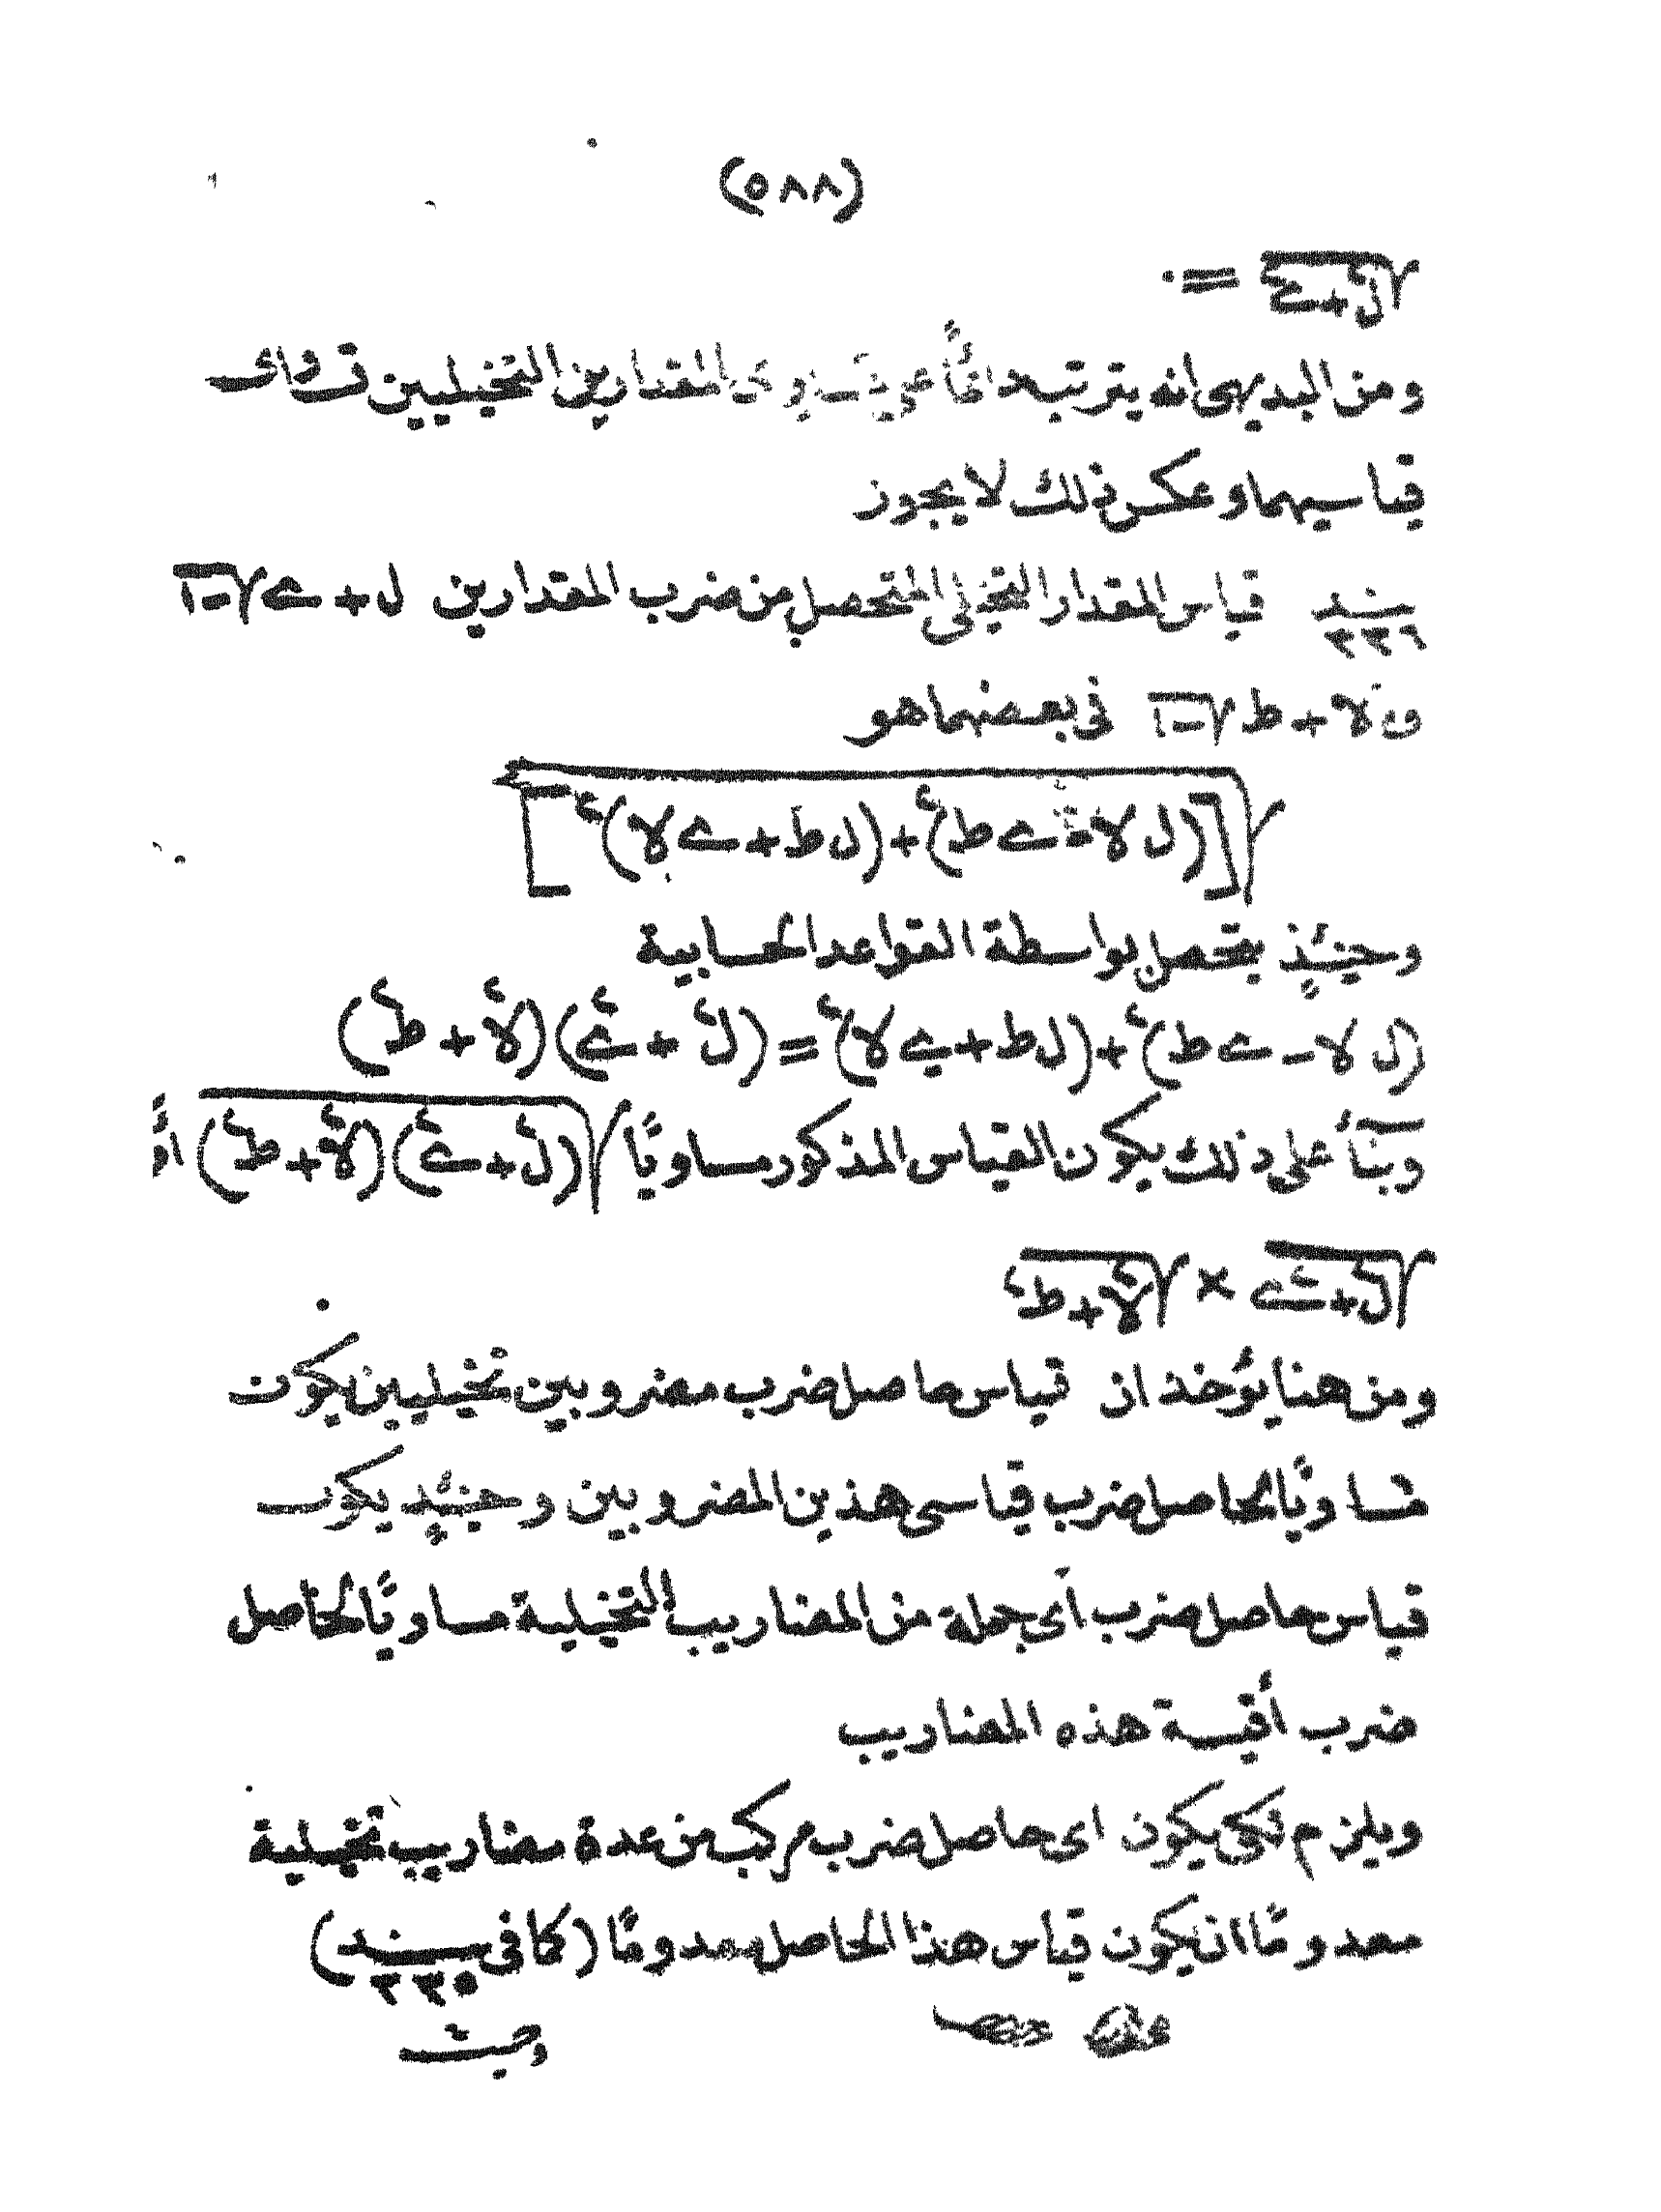 (٥٨٨)
√(ل٢+ے٢) = ٠
ومن البديهى انه يترتب دائمًا على تساوى المقدارين التخيليين تساوى
قياسيهما وعكس ذلك لا يجوز
سند ٣٣٦ قياس المقدار التخيلى المتحصل من ضرب المقدارين ل + ے√-١
و لا + ط√-١ فى بعضهما هو
√[(ل لا - ے ط)٢ + (ل ط + ے لا)٢]
وحينئذٍ يتحصل بواسطة القواعد الحسابية
(ل لا - ے ط)٢ + (ل ط + ے لا)٢ = (ل٢ + ے٢)(لا٢ + ط٢)
وبناً على ذلك يكون القياس المذكور مساويًا √(ل٢+ے٢)(لا٢+ط٢) أو
√(ل٢+ے٢) × √(لا٢+ط٢)
ومن هنا يؤخذ ان قياس حاصل ضرب مضروبين تخيليين يكون
مساويًا لحاصل ضرب قياسى هذين المضروبين وحينئدٍ يكون
قياس حاصل ضرب أى جملة من المضاريب التخيلية مساويًا لحاصل
ضرب أقيسة هذه المضاريب
ويلزم لكى يكون اى حاصل ضرب مركب من عدة مضاريب تخيلية
معدومًا ان يكون قياس هذا الحاصل معدومًا (كما فى سند ٣٣٥)
وحيث